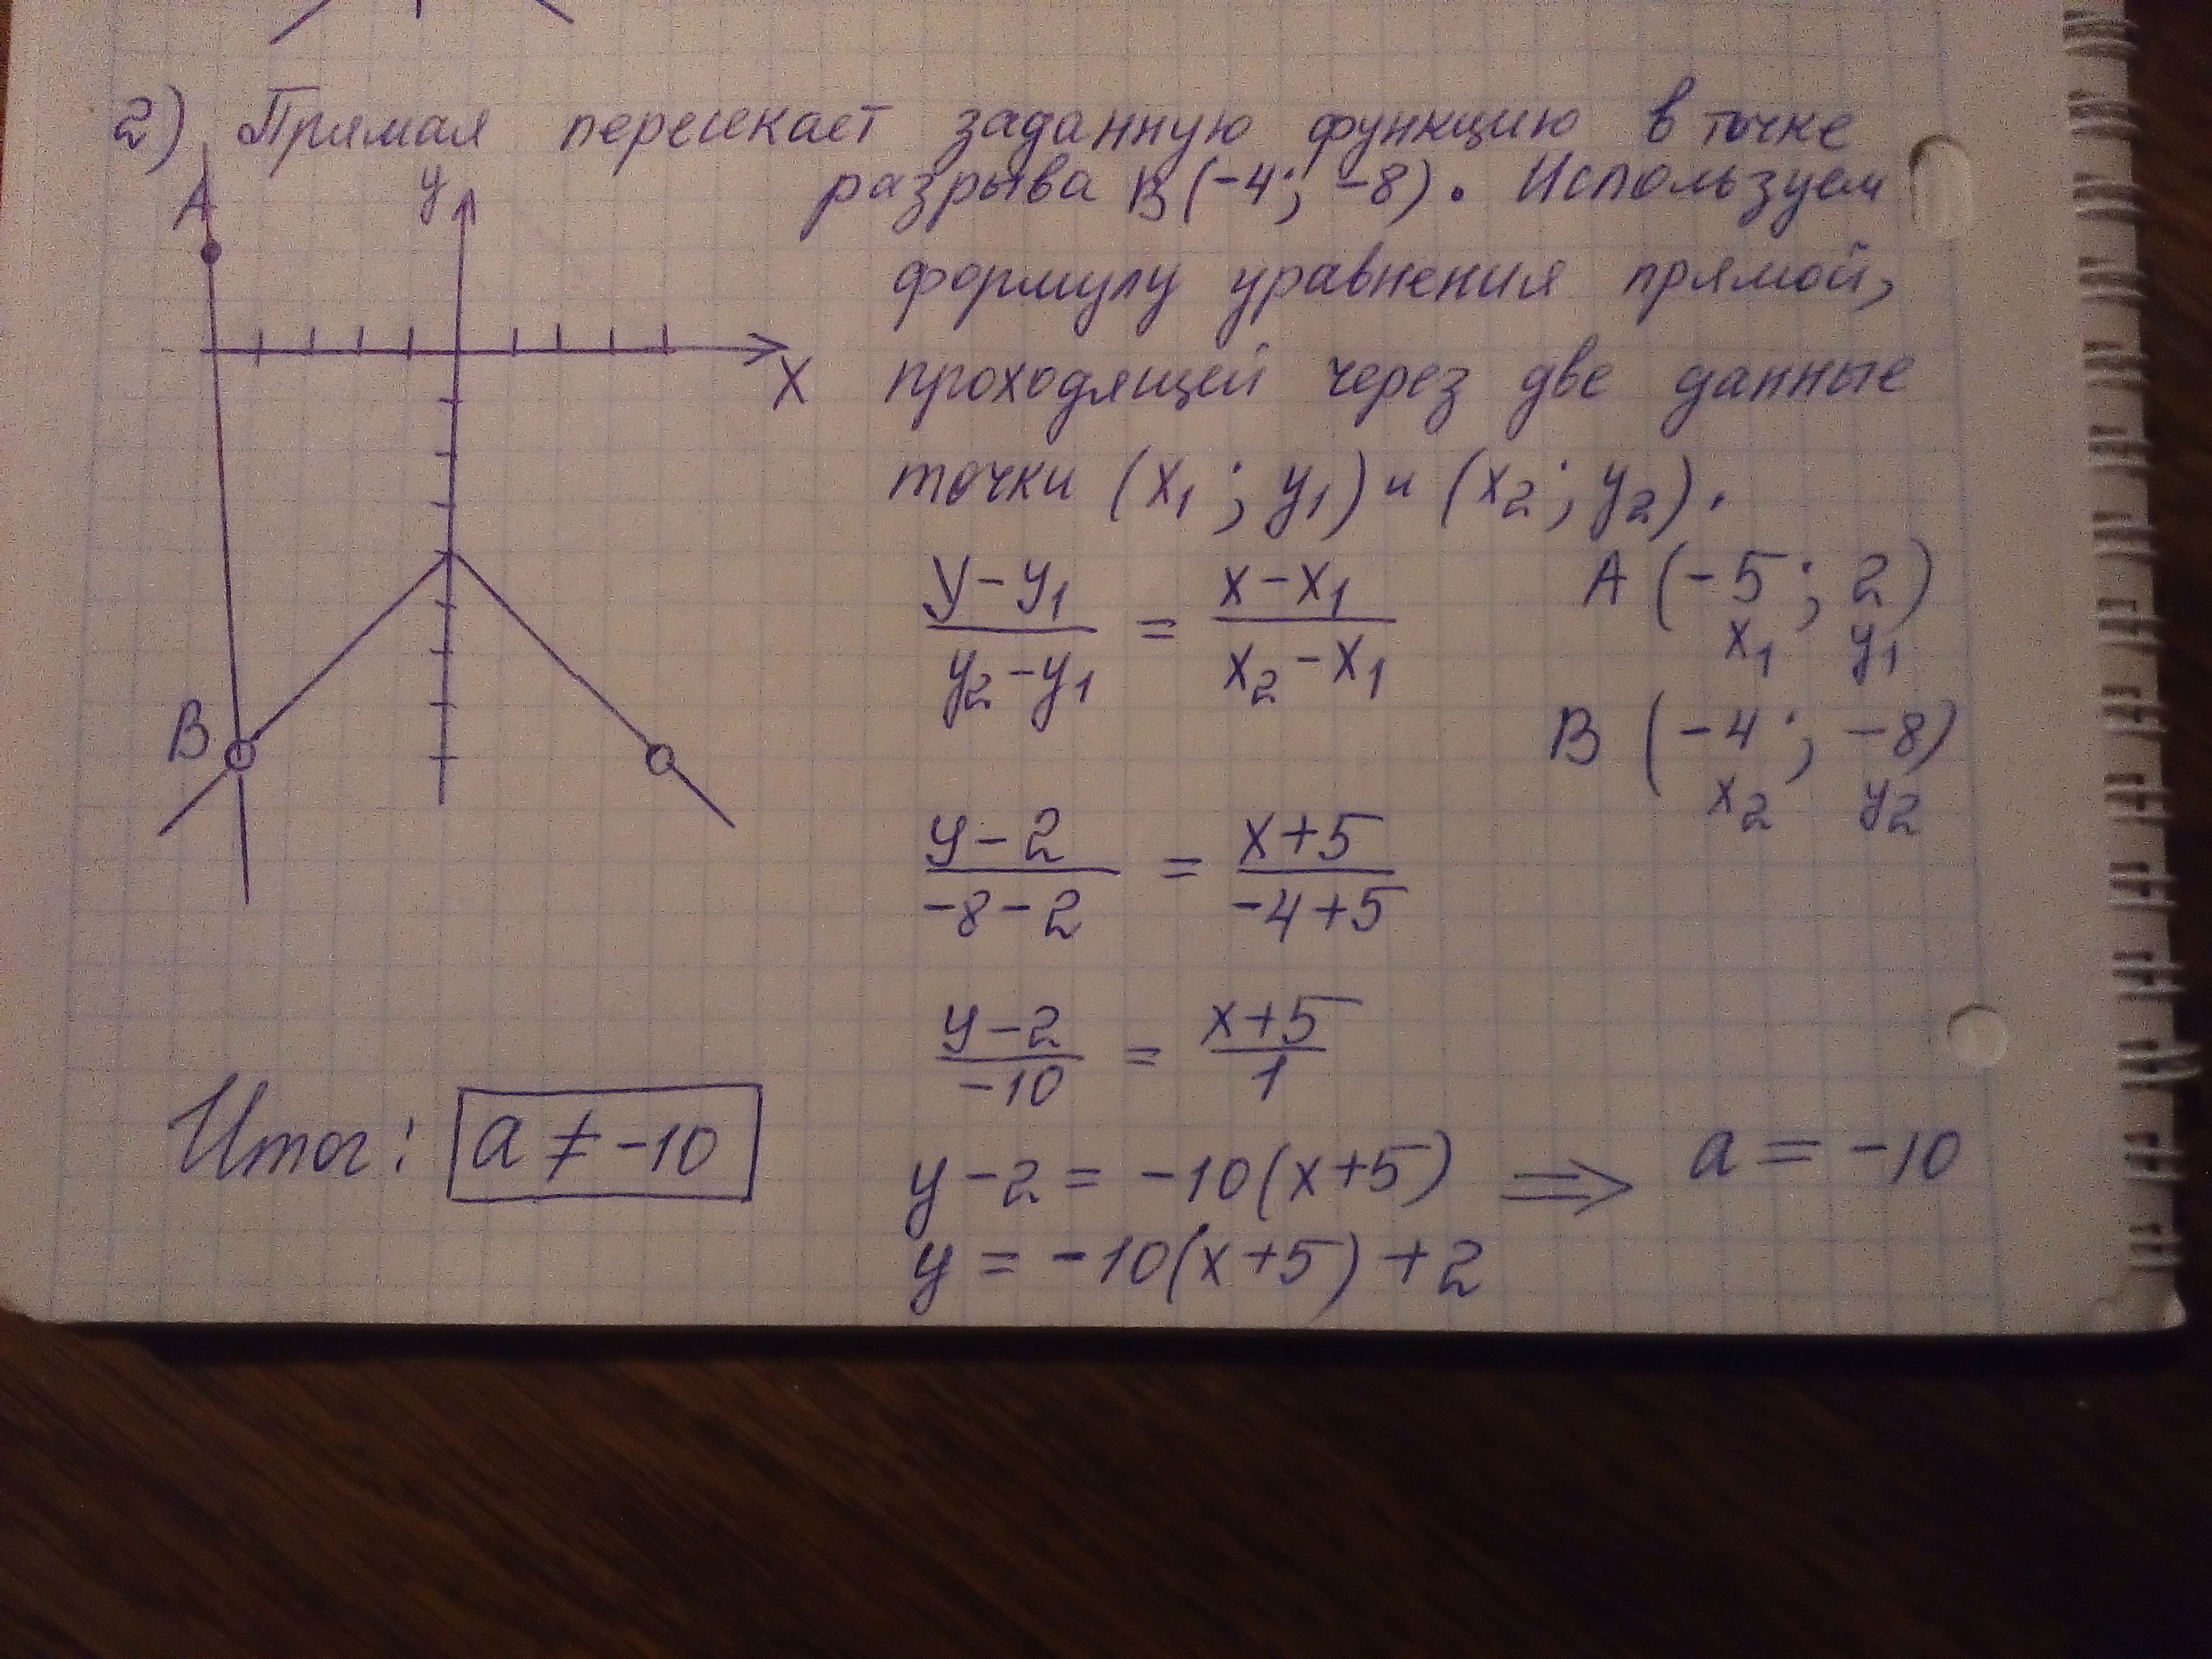 2) Прямая пересекает заданную функцию в точке
разрыва B(-4; -8). Используем
формулу уравнения прямой,
проходящей через две данные
точки (x₁; y₁) и (x₂; y₂).
A
y
X
B
(y-y₁)/(y₂-y₁) = (x-x₁)/(x₂-x₁)
A (-5; 2)
x₁ y₁
B (-4; -8)
x₂ y₂
(y-2)/(-8-2) = (x+5)/(-4+5)
(y-2)/(-10) = (x+5)/1
y-2 = -10(x+5) ⟹ a = -10
y = -10(x+5)+2
Итог: a ≠ -10